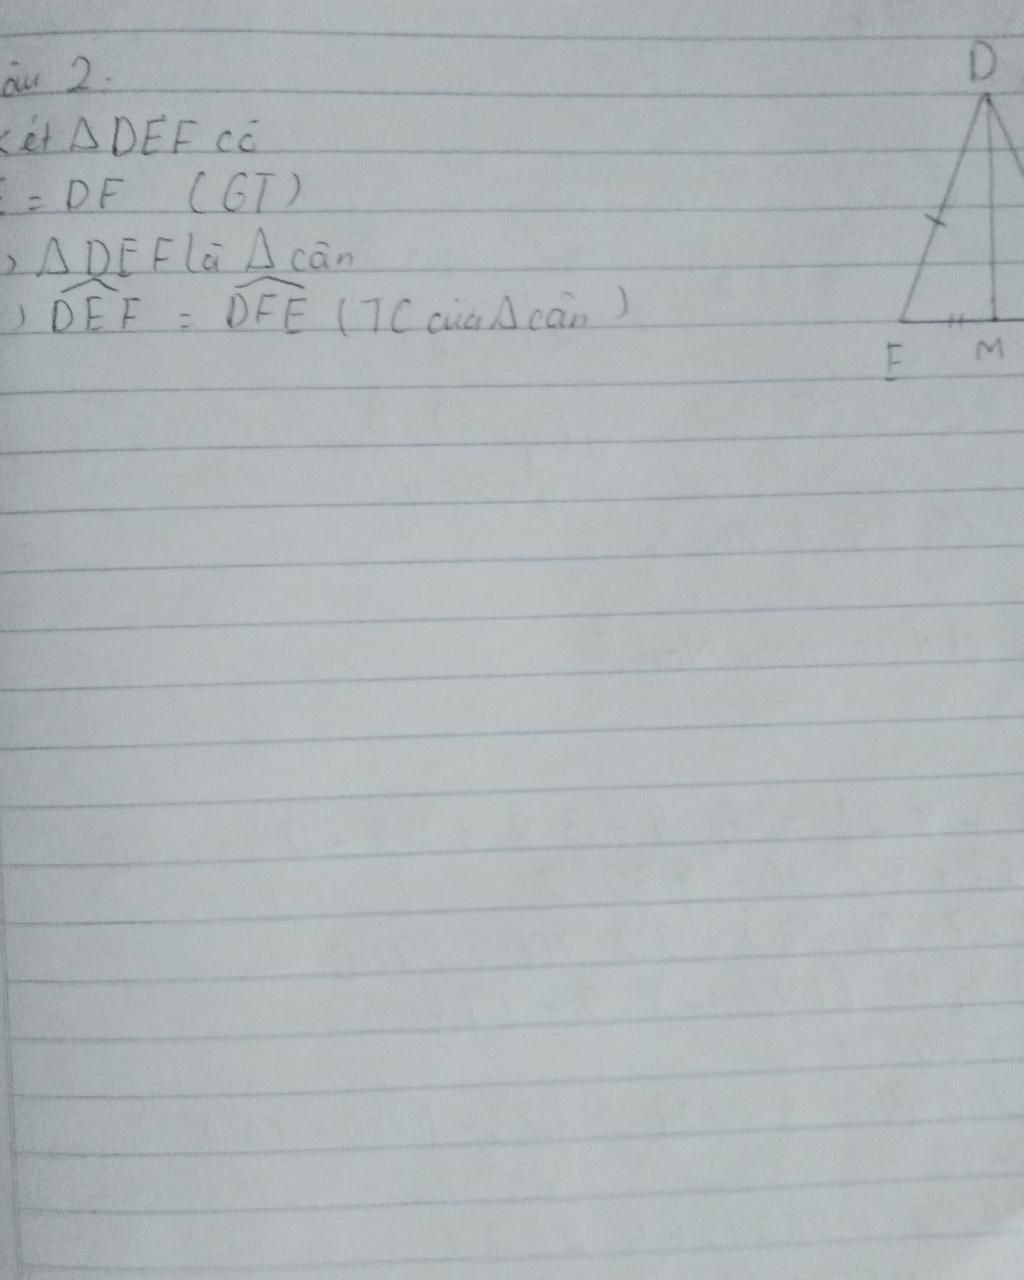 âu 2.
xét Δ DEF có
E = DF (GT)
Δ DEF là Δ cân
DEF = DFE (TC của Δ cân)
D
E M